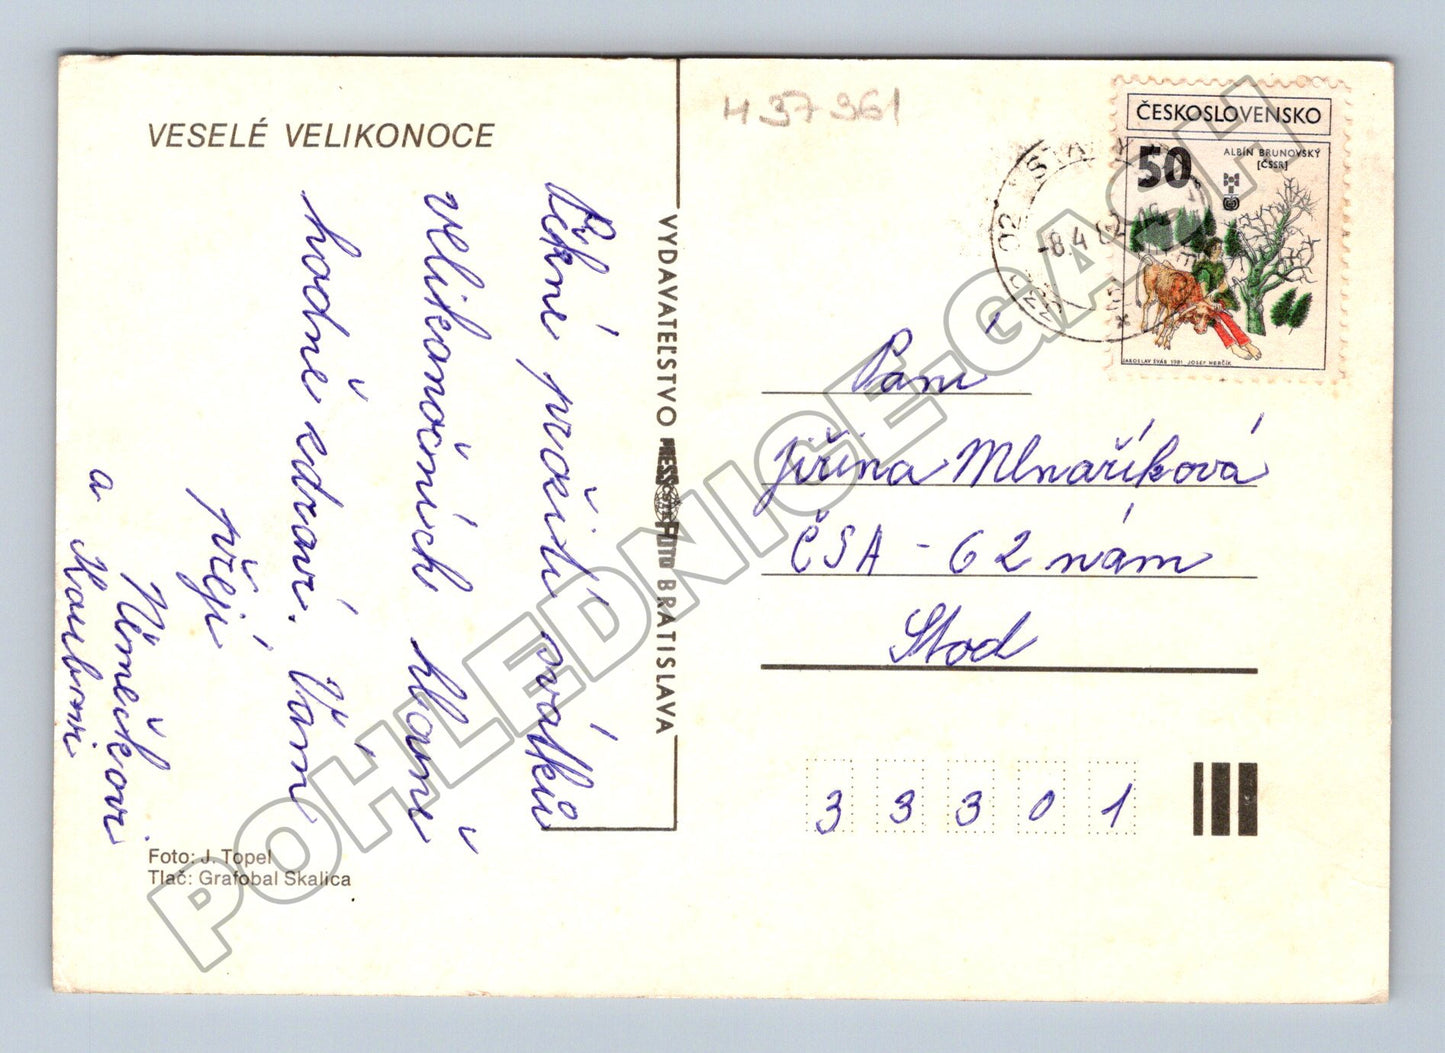 VESELÉ VELIKONOCE
Pěkné prožití svátků
velikonočních hlavně
hodně zdraví. Vám
přejí
Němečkovi
a Haubnvi
Foto: J. Topel
Tlač: Grafobal Skalica
VYDAVATEĽSTVO PRESSFOTO BRATISLAVA
437961
ČESKOSLOVENSKO
50
ALBÍN BRUNOVSKÝ
[ČSSR]
JAROSLAV ŠVÁB 1981 JOSEF HERČÍK
-8.4.82
Paní
Jiřina Mlnaříková
ČSA - 62 nám
Stod
33301
POHLEDNICE-GASH